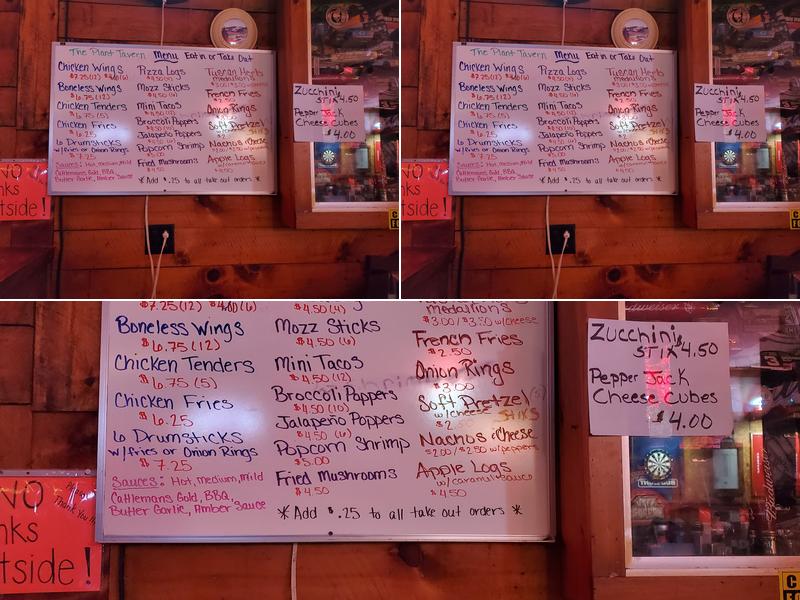 The Plant Tavern Menu Eat in or Take Out
Chicken Wings
$7.25(12) $4.60(6)
Boneless Wings
$6.75 (12)
Chicken Tenders
$6.75 (5)
Chicken Fries
$6.25
6 Drumsticks
w/fries or Onion Rings
$7.25
Sauces: Hot, medium, mild
Cattlemans Gold, BBQ,
Butter Garlic, Amber Sauce
Pizza Logs
$4.50(4)
Mozz Sticks
$4.50 (6)
Mini Tacos
$4.50 (12)
Broccoli Poppers
$4.50 (10)
Jalapeño Poppers
$4.50 (6)
Popcorn Shrimp
$5.00
Fried Mushrooms
$4.50
medallions
$3.00/$3.50 w/cheese
French Fries
$2.50
Onion Rings
$3.00
Soft Pretzel
w/cheese STIKS
Nachos & Cheese
$2.00/$2.50 w/peppers
Apple Logs
w/caramel sauce
$4.50
* Add $.25 to all take out orders *
Zucchini
STIX 4.50
Pepper Jack
Cheese Cubes
$4.00
NO
nks
tside!